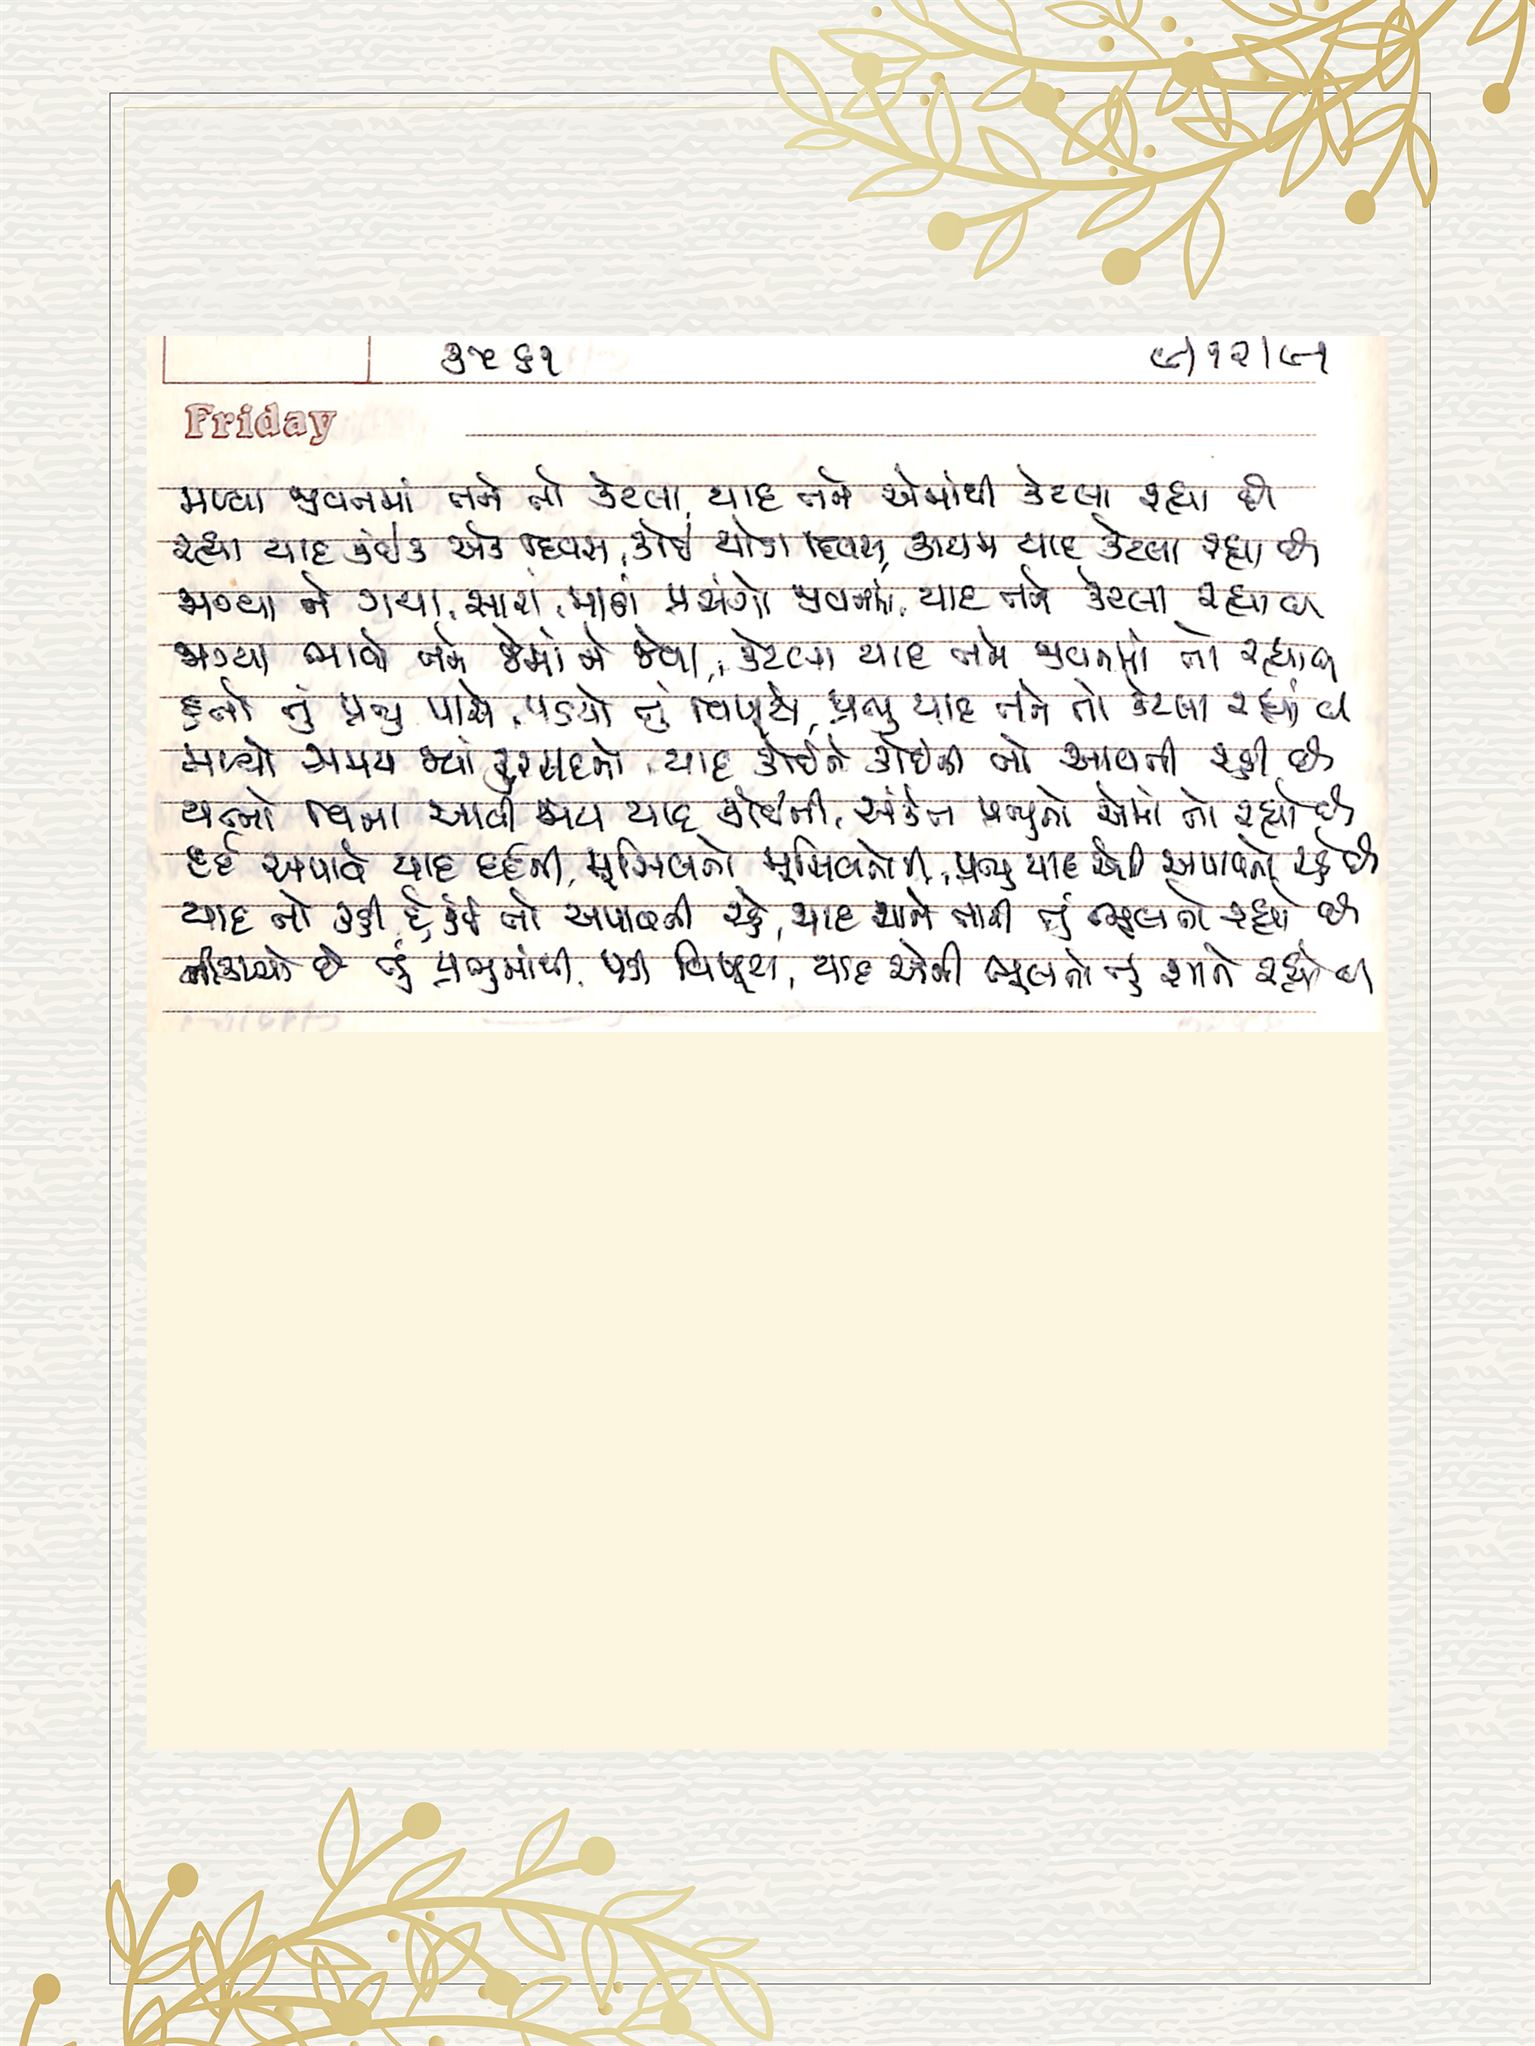 ૩૪૬૧
Friday
મળ્યા જીવનમાં તને તો કેટલા, યાદ તને એમાંથી કેટલા રહ્યા છે
રહ્યા યાદ કંઈક એક દિવસ, કોઈ થોડા દિવસ, કાયમ યાદ કેટલા રહ્યા છે
આવ્યા ને ગયા, સારાં, માઠાં પ્રસંગો જીવનમાં, યાદ તને કેટલા રહ્યા છે
જાગ્યા ભાવો તને જેમાં ને જેવા, કેટલા યાદ તને જીવનમાં તો રહ્યા છે
હતો તું પ્રભુ પાસે, પડયો તું વિખૂટો, પ્રભુ યાદ તને તો કેટલા રહ્યાં છે
મળ્યો સમય જ્યાં ફુરસદનો, યાદ કોઈને કોઈની તો આવતી રહી છે
યત્નો વિના આવી જાય યાદ કોઈની, સંકેત પ્રભુનો એમાં તો રહ્યો છે
દર્દ અપાવે યાદ દર્દની, મુસીબતો મુસીબતોની, પ્રભુ યાદ એની અપાવતો રહે છે
યાદ તો રહી છે, કંઈ તો અપાવતી રહે, યાદ શાને તારી તું ભૂલતો રહ્યો છે
નીકળ્યો છે તું પ્રભુમાંથી, પડી વિખૂટા, યાદ એની ભૂલતો તું શાને રહ્યો છે